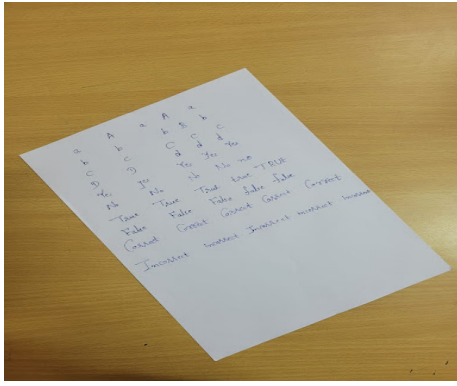 a A a A a
b b b B b
c c C c C
D D d d d
Yes yes Yes Yes Yes
No No No No no
True True True true TRUE
False False False false false
Correct Correct Correct Correct Correct
Incorrect incorrect Incorrect incorrect incorrect